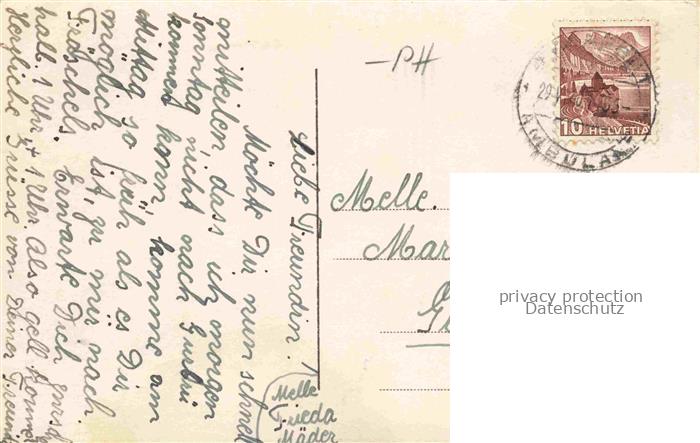 Liebe Freundin!
Möchte Dir nun schnell
mitteilen, dass ich morgen
Sonntag nicht nach Gurbrü
kommen kann komme am
Mittag so früh als es Dir
möglich ist, zu mir nach
Fräschels. Erwarte Dich
halb 1 Uhr, + 1 Uhr. Also gell
Herzliche Grüsse von Deiner
Melle
Frieda
Mäder
–PH
HELVETIA
10
AMBULA
Melle.
Mar
privacy protection
Datenschutz